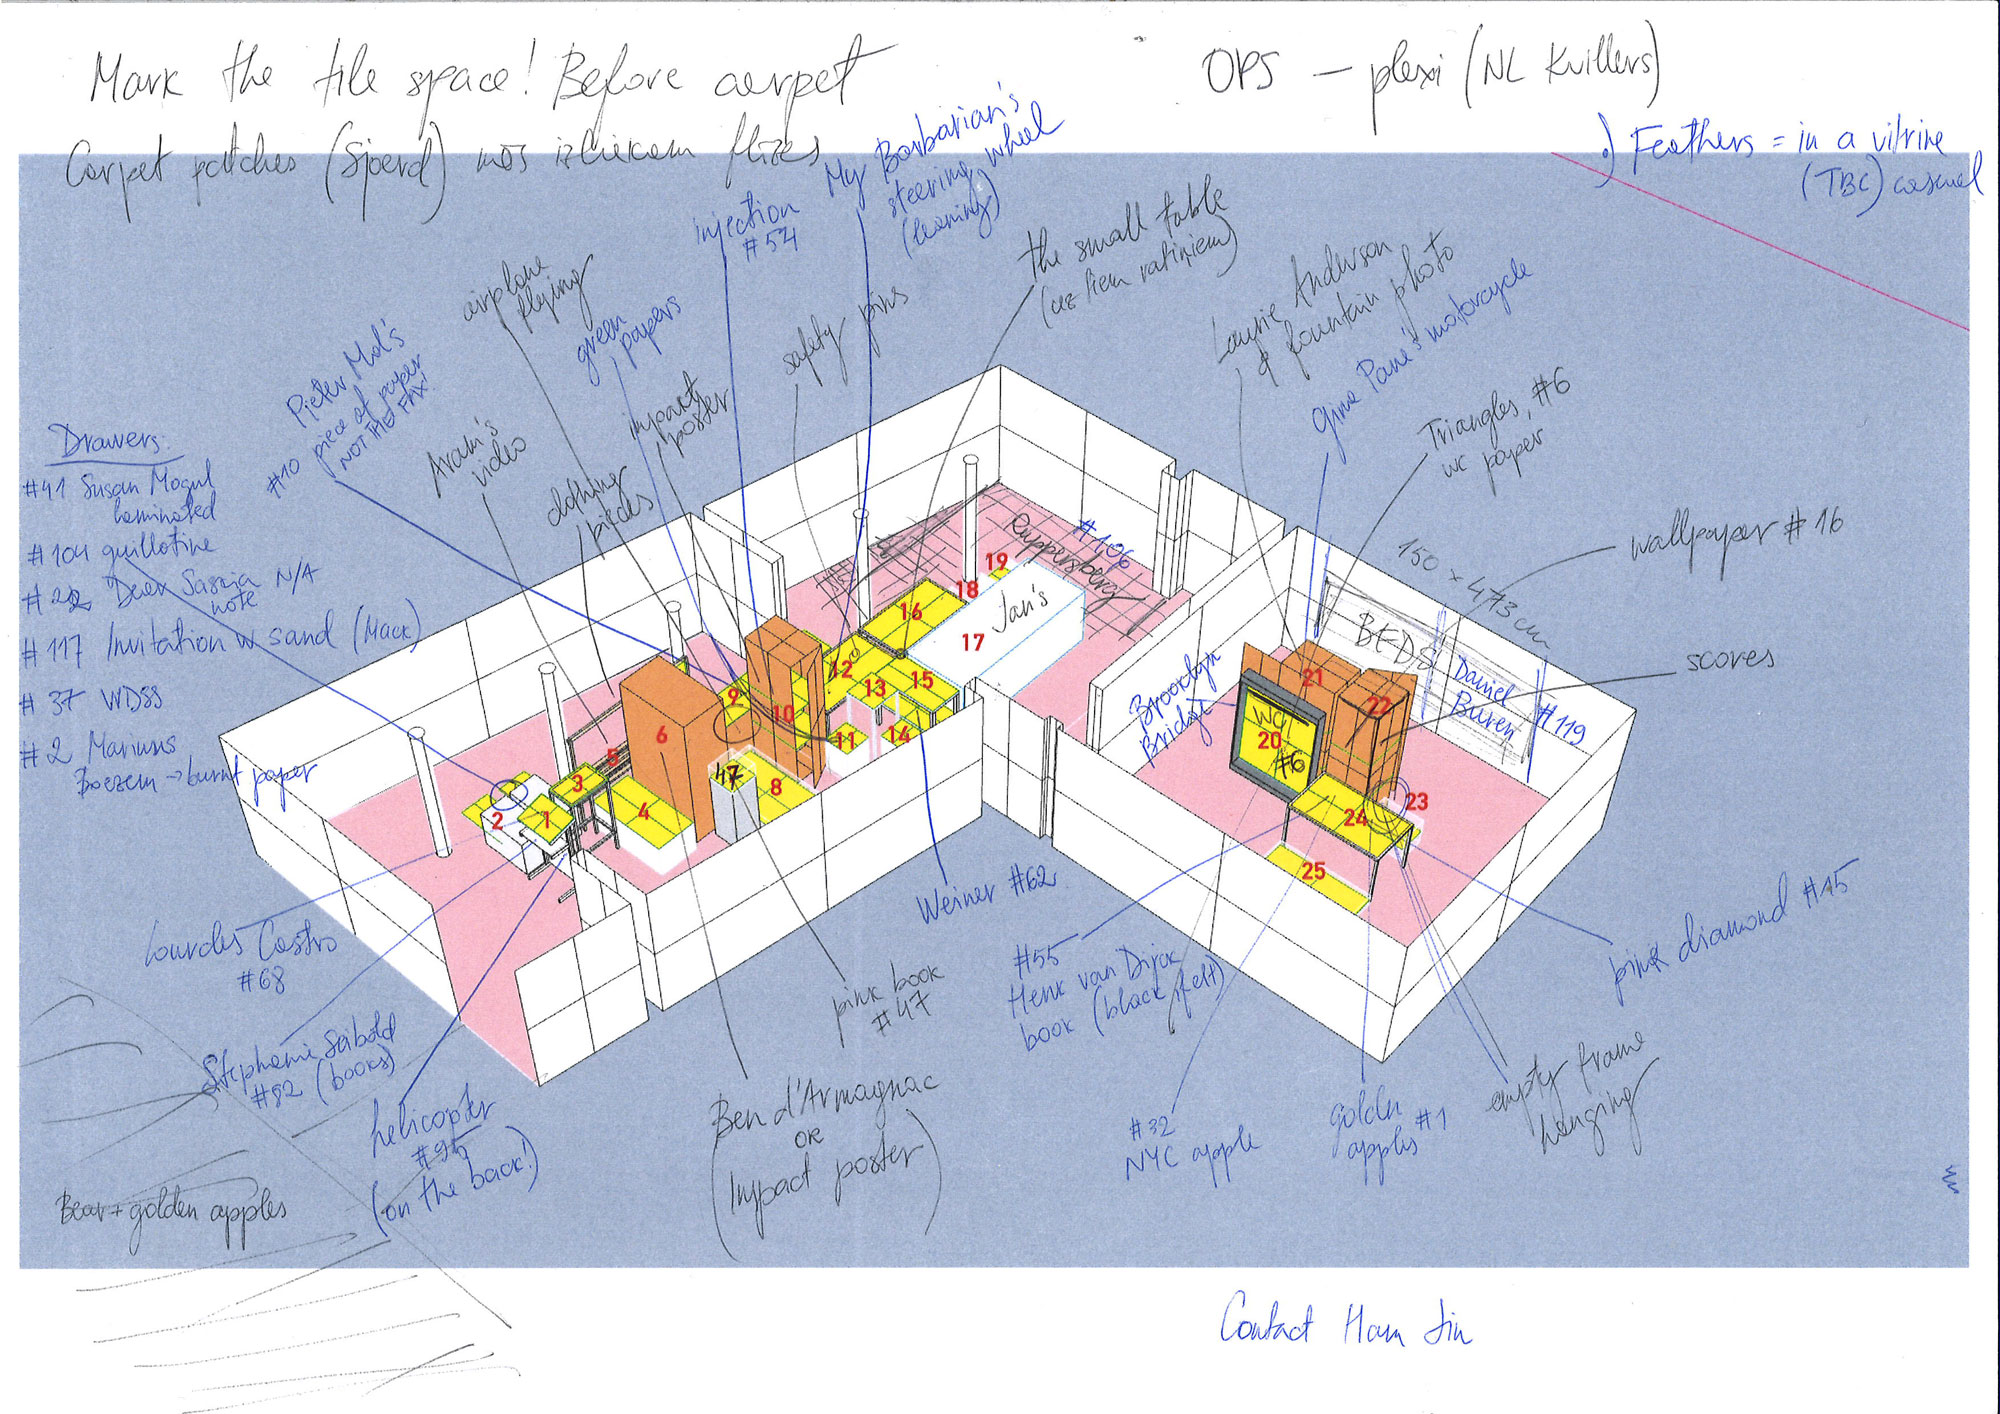 Mark the tile space! Before carpet
OPS – plexi (NL Kvillers)
Carpet patches (Sjoerd) mēs izliekam flīzes
•) Feathers = in a vitrine
(TBC) casual
My Barbarian's
steering wheel
(leaning)
injection
#54
the small table
airplane
flying
green
papers
safety pins
Laurie Anderson
& fountain photo
Gina Pane's motorcycle
Pieter Mol's
piece of paper
NOT THE FAX!
#10
impact
poster
Triangles, #6
WC paper
Aram's
video
clothing
pieces
Drawers
#41 Susan Mogul
laminated
#104 guillotine
#22 Dear Saskia N/A
note
#117 Invitation w sand (Mack)
#37 WDSS
#2 Marinus
Boezem → burnt paper
wallpaper #16
150 x 473 cm
Ruppersberg
#106
Jan's
BEDS
Daniel
Buren
#119
scores
Brooklyn
Bridge
WC
#6
47
1
2
3
4
5
6
8
9
10
11
12
13
14
15
16
17
18
19
20
21
22
23
24
25
Lourdes Castro
#68
Stephanie Seibold
#82 (books)
helicopter
#95
(on the back!)
Bear + golden apples
Ben d'Armagnac
OR
(Impact poster)
pink book
#47
Weiner #62
#55
Henk van Dijck
book (black, felt)
#32
NYC apple
golden
apples #1
empty frame
hanging
pink diamond #15
Contact Ham Jin